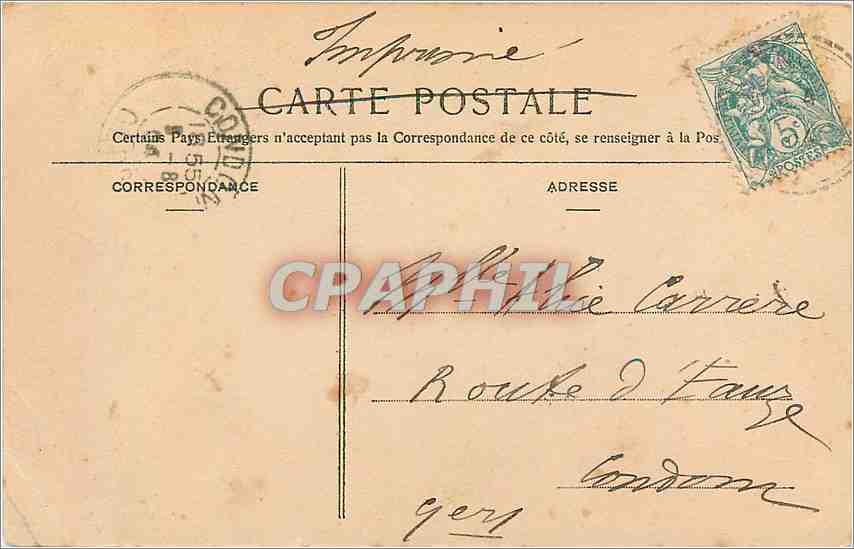 Imprimé
CARTE POSTALE
Certains Pays Etrangers n'acceptant pas la Correspondance de ce côté, se renseigner à la Pos
CONDOM
1855
5 - 8
5c
POSTES
CORRESPONDANCE
ADRESSE
CPAPHIL
Melle Carrère
Route d'Eauze
Condom
Gers